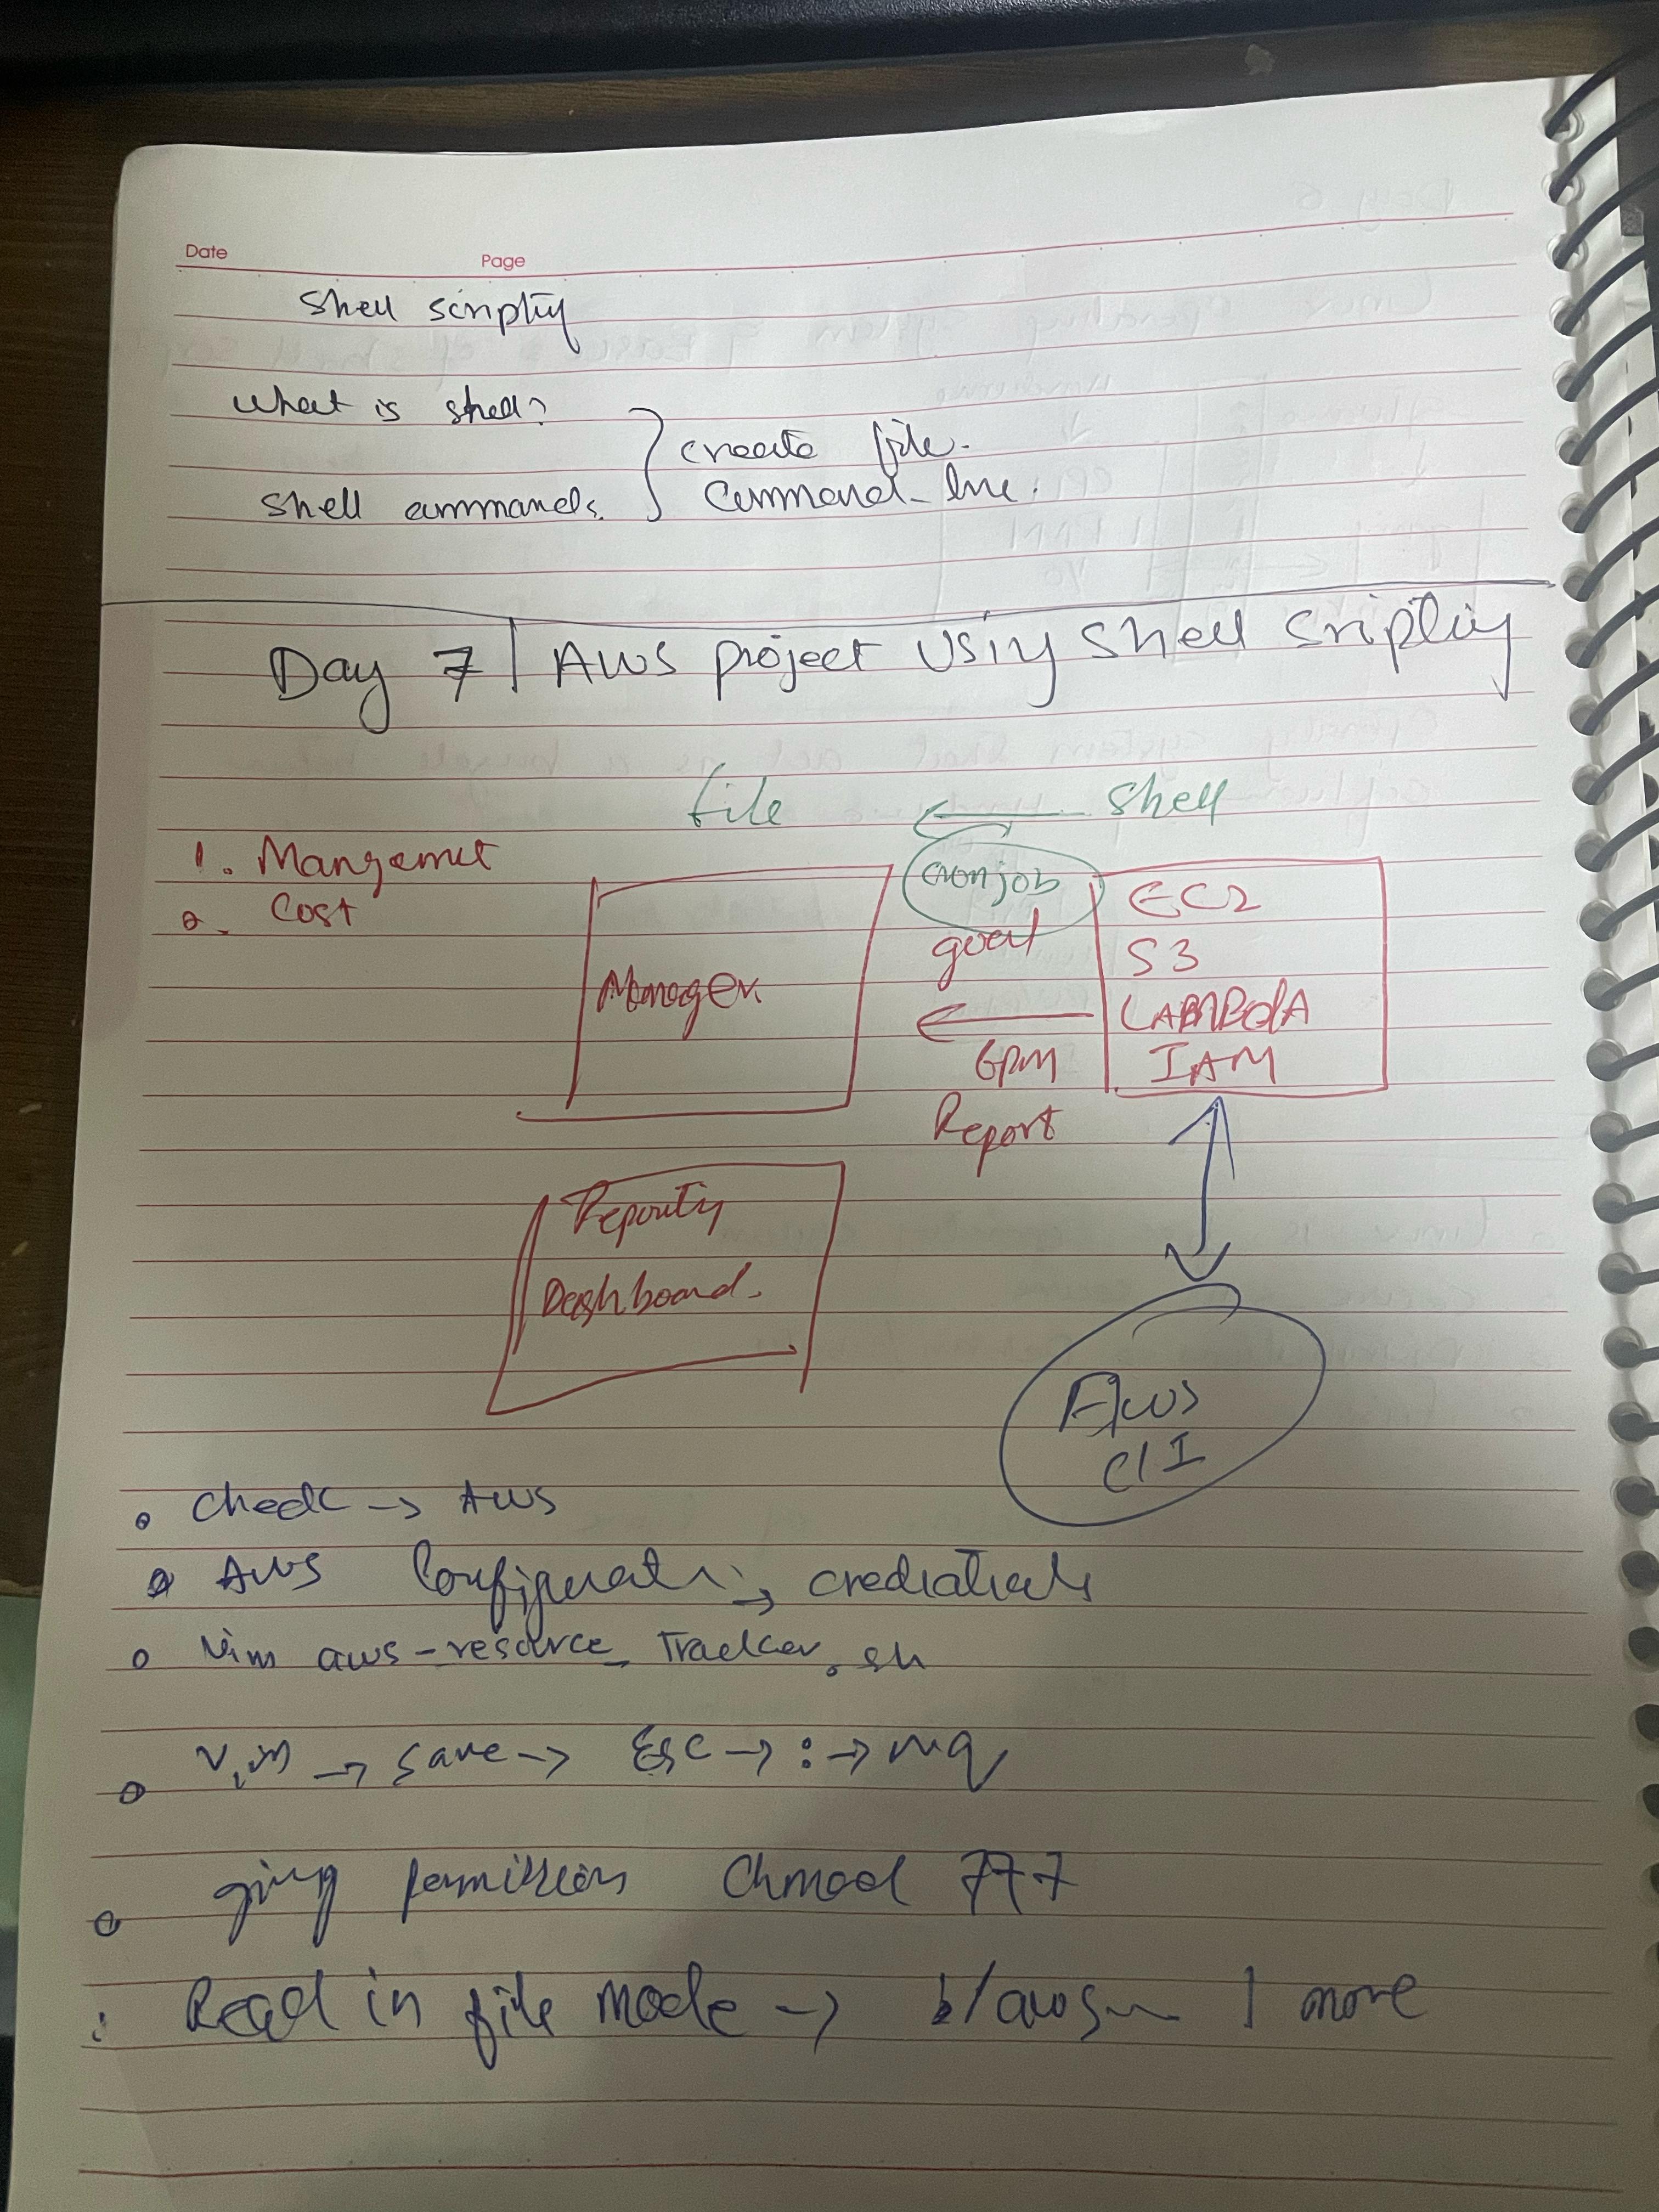 Date Page
Shell scripting
What is shell?
Shell commands.
create file.
Command-line.
Day 7 | AWS project Using Shell Sripting
file ← Shell
1. Mangemet
Cost
Manager
cronjob
goal
←
6PM
Report
EC2
S3
LAMBdA
IAM
Reporting
Dashboard.
AWS
ClI
Check → AWS
AWS Configurat →
Vim aws-resource_Tracker.sh
Vim → Save → Esc → : → wq
giving permission Chmod 777
Read in file mode → | more